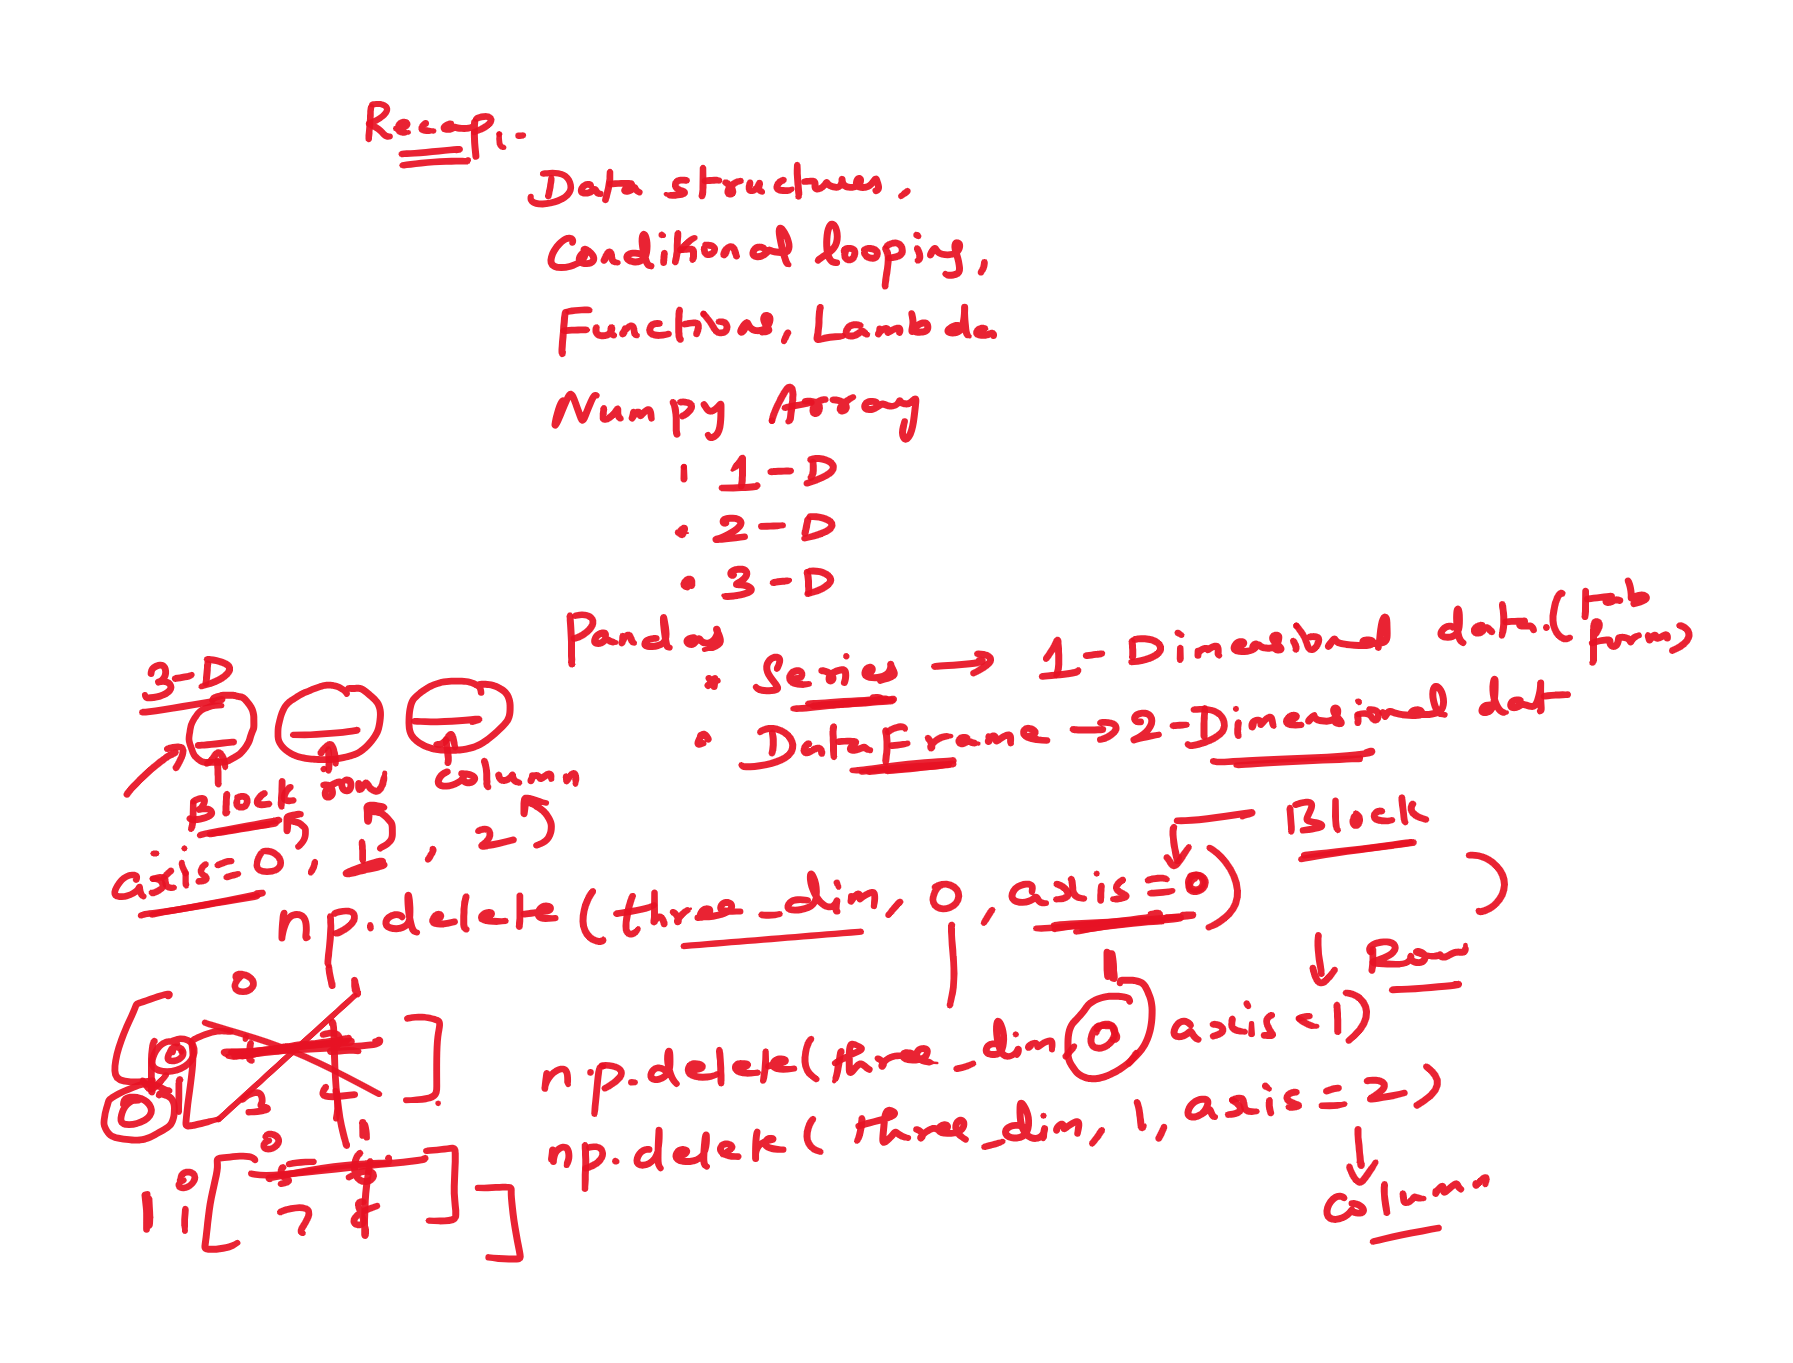 Recap:-
Data structures,
Conditional looping,
Functions, Lambda
Numpy Array
1-D
• 2-D
• 3-D
Pandas
• Series → 1-Dimensional data (tab form)
• DataFrame → 2-Dimensional dat
3-D
Block row column
axis=0, 1, 2
Block
np.delete(three_dim, 0, axis=0) )
Row
np.delete(three_dim, 0 axis=1)
np.delete(three_dim, 1, axis=2)
column
0 1
0
0 1 2
1 3 4
0 1
0 5 6
1 1 7 8